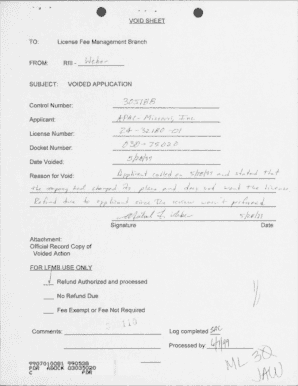 VOID SHEET
TO: License Fee Management Branch
FROM: RIII - Weber
SUBJECT: VOIDED APPLICATION
Control Number:
Applicant: APAC-Missouri, Inc.
License Number:
Docket Number:
Date Voided: 5/28/99
Reason for Void: Applicant called on 5/28/99 and stated that
the company had changed its plans and does not want the license.
Refund due to applicant since the review wasn't performed
5/28/99
Signature Date
Attachment:
Official Record Copy of
Voided Action
FOR LFMB USE ONLY
Refund Authorized and processed
No Refund Due
Fee Exempt or Fee Not Required
Comments: Log completed
Processed by
ML 30
JAW
9907010081 990528
PDR ADOCK 03035020
C PDR